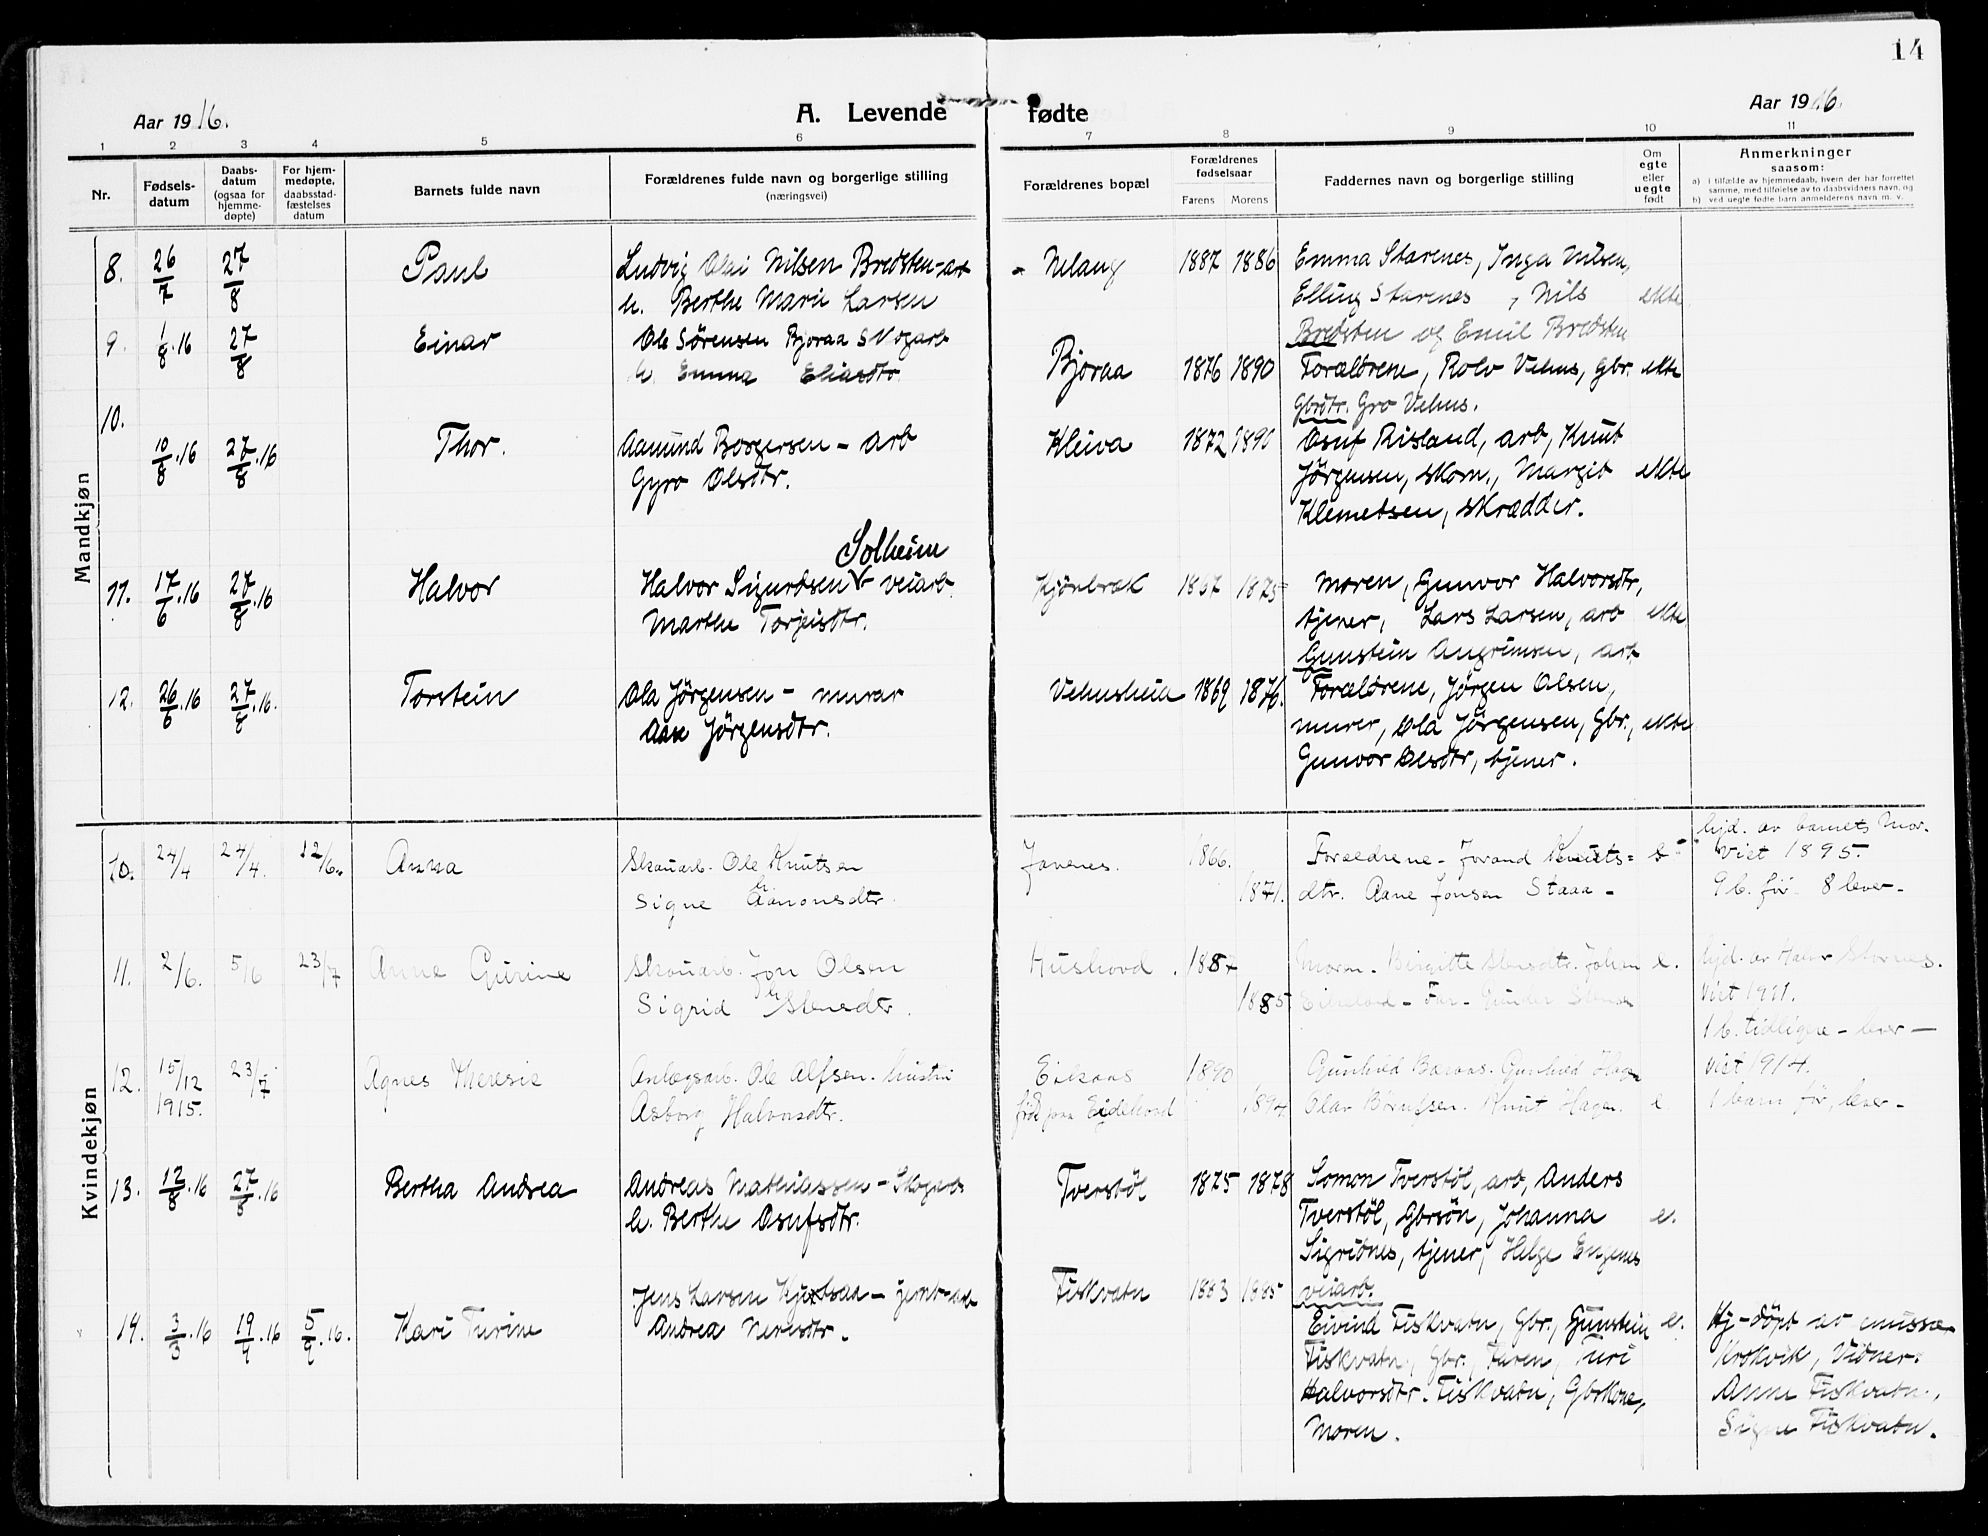 14
Aar 1916.
A. Levende fødte
Aar 1916.
1 2 3 4 5 6 7 8 9 10 11
Nr.
Fødsels-
datum
Daabs-
datum
(ogsaa for
hjemme-
døpte)
For hjem-
medøpte,
daabsstad-
fæstelses
datum
Barnets fulde navn
Forældrenes fulde navn og borgerlige stilling
(næringsvei)
Forældrenes bopæl
Forældrenes
fødselsaar
Farens Morens
Faddernes navn og borgerlige stilling
Om
egte
eller
uegte
født
Anmerkninger
saasom:
a) i tilfælde av hjemmedaab, hvem der har forrettet
samme, med tilføielse av to daabsvidners navn, og
b) ved uegte fødte barn anmelderens navn m. v.
Mandkjøn
8. 26/7 27/8 Paul Ludvig Olai Nilsen Bredsten-arb Nelaug 1887 1886 Emma Starenes, Inga Nilsen,
h. Berthe Marie Larsen Elling Starenes, Nils ekte
Bredsten og Emil Bredsten
9. 1/8.16 27/8 Einar Ole Sørensen Bjoraa Skogarb
h. Emma Eliasdtr. Bjoraa 1876 1890 Forældrene, Rolv Vehus, gbr. ekte
gbrdtr. Gro Vehus.
10. 10/8.16 27/8.16 Thor. Aamund Borgersen - arb Kleiva 1872 1890 Osuf Risland, arb, Knut
Gyro Olsdtr. Jørgensen, skom., Margit ekte
Klemetsen, skrædder.
Solheim
11. 17/6.16 27/8.16 Halvor Halvor Sigurdsen veiarb. Kjønbrak 1867 1875 Moren, Gunvor Halvorsdtr,
Marthe Torjeisdtr. tjener, Lars Larsen, arb ekte
Gunstein Angrimsen, arb
12. 26/6.16 27/8.16. Torstein Ola Jørgensen - murar Vehusheia 1869 1876. Forældrene, Jørgen Olsen,
Aase Jørgensdtr. murer, Ola Jørgensen, Gbr., ekte
Gunvor Olsdtr, tjener.
Kvindekjøn
10. 24/4 24/4. 12/6. Anna Skouarb. Ole Knutsen Jovenes. 1866. Forældrene - Jorand Knuts= hjd. av barnets Mor.
h. Signe Aanonsdtr. 1871. dtr. Aane Jonsen Staaa - Viet 1895.
9 b. før. 8 lever -
11. 2/6. 5/6 23/7 Anne Gurine Skouarb. Jon Olsen Hushovd. 1887 Moren - Birgitte Stensdtr. Johan e. hjd. av Halvor Stornes.
h. Sigrid Stensdtr. 1885. Far - Gunder Stensen Viet 1911.
1 b. tidligere - lever -
12. 15/12 1915. 23/7 Agnes Theresie Anlægsarb. Ole Alfsen. hustru Eikaas 1890 Gunhild Baraas. Gunhild Hagen Viet 1914.
Asborg Halvorsdtr. født paa Eidehovd 1894. Olav Bernssen. Knut Hagen. e. 1 barn før, lever -
13. 12/8.16 27/8.16 Bertha Andrea Andreas Mathiassen - Skogarb Tverstøl 1875 1878 Somon Tverstøl, arb, Anders
h. Berthe Osufsdtr. Tverstøl, Gbrsøn, Johanna e.
Sigridnes, tjener, Helge Engenes
veiarb.
14. 3/3.16 19/4.16 5/9.16. Kari Turine Jens Larsen - jernb-arb Fiskvatn 1883 1885
Andrea Nerisdtr. Eivind Fiskvatn, Gbr., Gunstein e. Hj-døpt av emissær
Fiskvatn, Gbr., Faren, Turi Krokvik, Vidner:
Halvorsdtr. Fiskvatn, Gbrkone, Anne Fiskvatn,
Moren. Signe Fiskvatn.